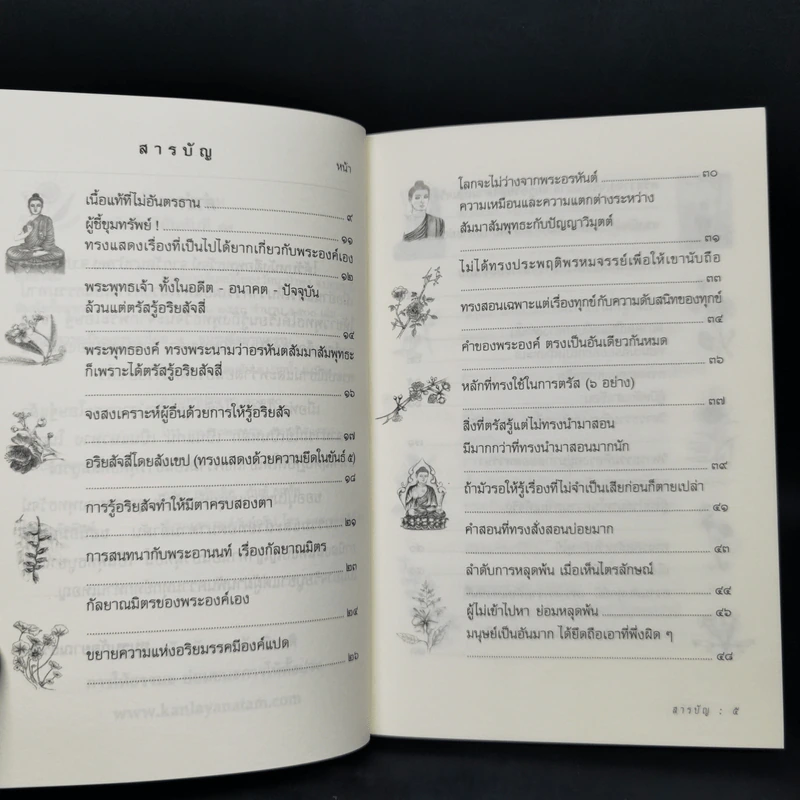 สารบัญ
หน้า
เนื้อแท้ที่ไม่อันตรธาน ๙
ผู้ชี้ขุมทรัพย์ ! ๑๑
ทรงแสดงเรื่องที่เป็นไปได้ยากเกี่ยวกับพระองค์เอง
๑๒
พระพุทธเจ้า ทั้งในอดีต - อนาคต - ปัจจุบัน
ล้วนแต่ตรัสรู้อริยสัจสี่
๑๔
พระพุทธองค์ ทรงพระนามว่าอรหันตสัมมาสัมพุทธะ
ก็เพราะได้ตรัสรู้อริยสัจสี่
๑๖
จงสงเคราะห์ผู้อื่นด้วยการให้รู้อริยสัจ
๑๗
อริยสัจสี่โดยสังเขป (ทรงแสดงด้วยความยึดในขันธ์ ๕)
๑๘
การรู้อริยสัจทำให้มีตาครบสองตา
๒๑
การสนทนากับพระอานนท์ เรื่องกัลยาณมิตร
๒๓
กัลยาณมิตรของพระองค์เอง
๒๔
ขยายความแห่งอริยมรรคมีองค์แปด
๒๖
www.kanlayanatam.com
โลกจะไม่ว่างจากพระอรหันต์ ๓๐
ความเหมือนและความแตกต่างระหว่าง
สัมมาสัมพุทธะกับปัญญาวิมุตต์
๓๑
ไม่ได้ทรงประพฤติพรหมจรรย์เพื่อให้เขานับถือ
๓๓
ทรงสอนเฉพาะแต่เรื่องทุกข์กับความดับสนิทของทุกข์
๓๔
คำของพระองค์ ตรงเป็นอันเดียวกันหมด
๓๖
หลักที่ทรงใช้ในการตรัส (๖ อย่าง)
๓๗
สิ่งที่ตรัสรู้แต่ไม่ทรงนำมาสอน
มีมากกว่าที่ทรงนำมาสอนมากนัก
๓๙
ถ้ามัวรอให้รู้เรื่องที่ไม่จำเป็นเสียก่อนก็ตายเปล่า
๔๑
คำสอนที่ทรงสั่งสอนบ่อยมาก
๔๓
ลำดับการหลุดพ้น เมื่อเห็นไตรลักษณ์
๔๔
ผู้ไม่เข้าไปหา ย่อมหลุดพ้น ๔๖
มนุษย์เป็นอันมาก ได้ยึดถือเอาที่พึ่งผิด ๆ
๔๘
สารบัญ : ๕